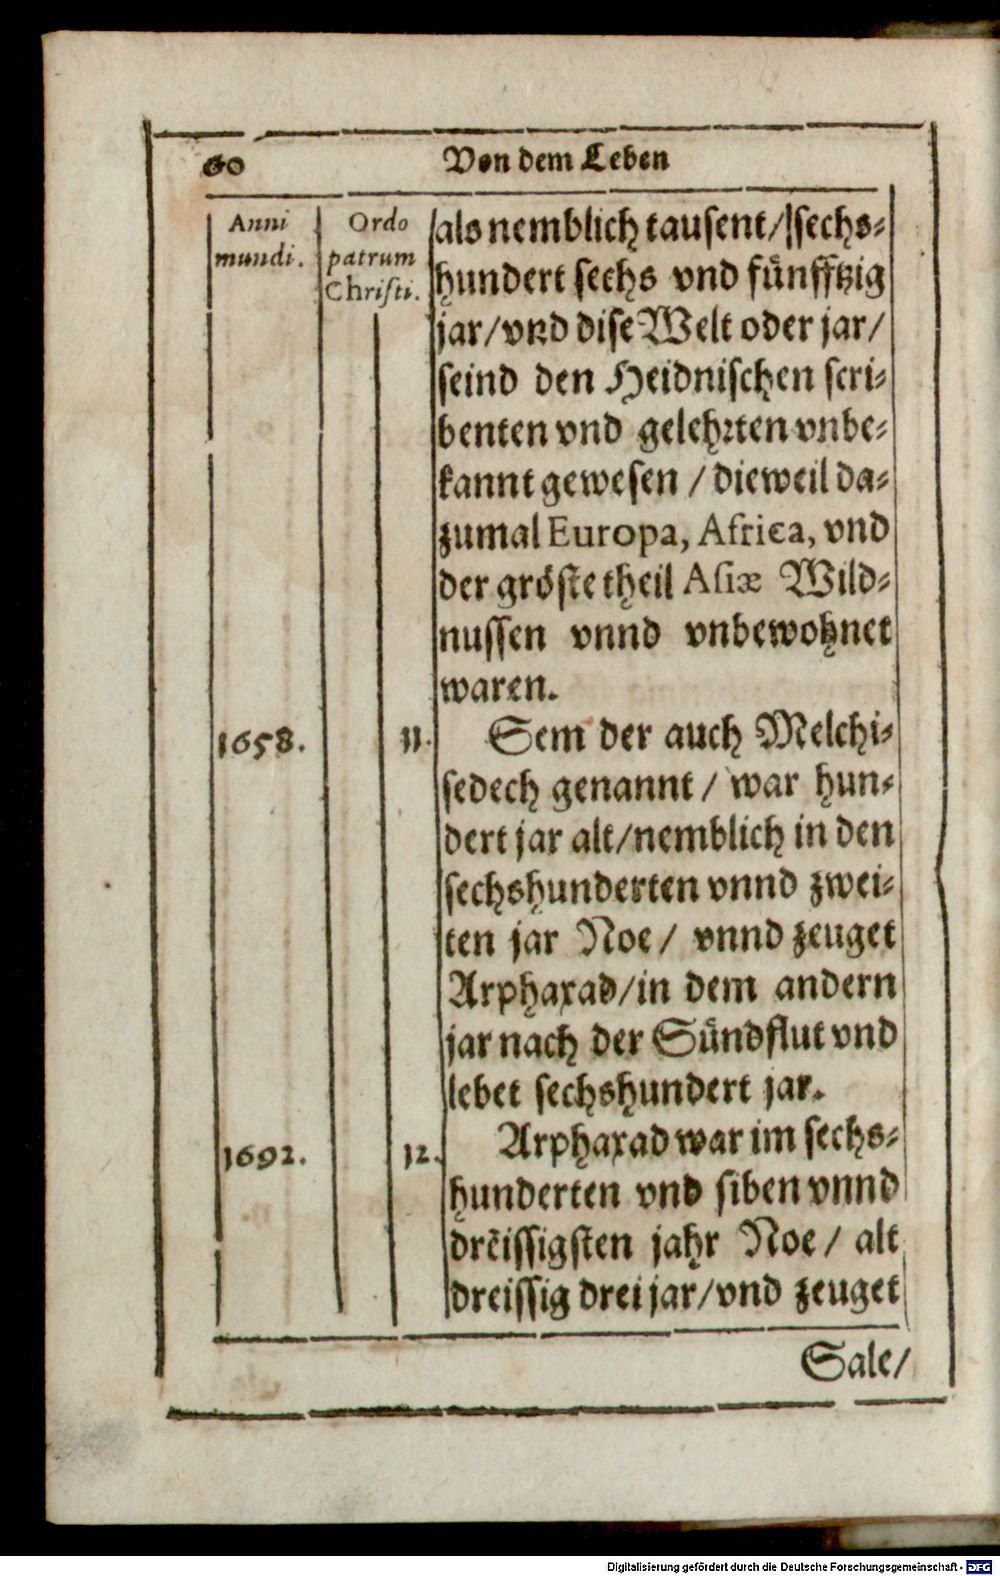 60 Von dem Leben
Anni
mundi.
Ordo
patrum
Christi.
als nemblich tausent/sechs-
hundert sechs vnd fünfftzig
jar/vnd dise Welt oder jar/
seind den Heidnischen scri-
benten vnd gelehrten vnbe-
kannt gewesen / dieweil da-
zumal Europa, Africa, vnd
der gröste theil Asiæ Wild-
nussen vnnd vnbewohnet
waren.
1658. 11. Sem der auch Melchi-
sedech genannt / war hun-
dert jar alt/nemblich in den
sechshunderten vnnd zwei-
ten jar Noe / vnnd zeuget
Arphaxad/in dem andern
jar nach der Sündflut vnd
lebet sechshundert jar.
1692. 12. Arphaxad war im sechs-
hunderten vnd siben vnnd
drëissigsten jahr Noe / alt
dreissig drei jar/vnd zeuget
Sale/
Digitalisierung gefördert durch die Deutsche Forschungsgemeinschaft - DFG